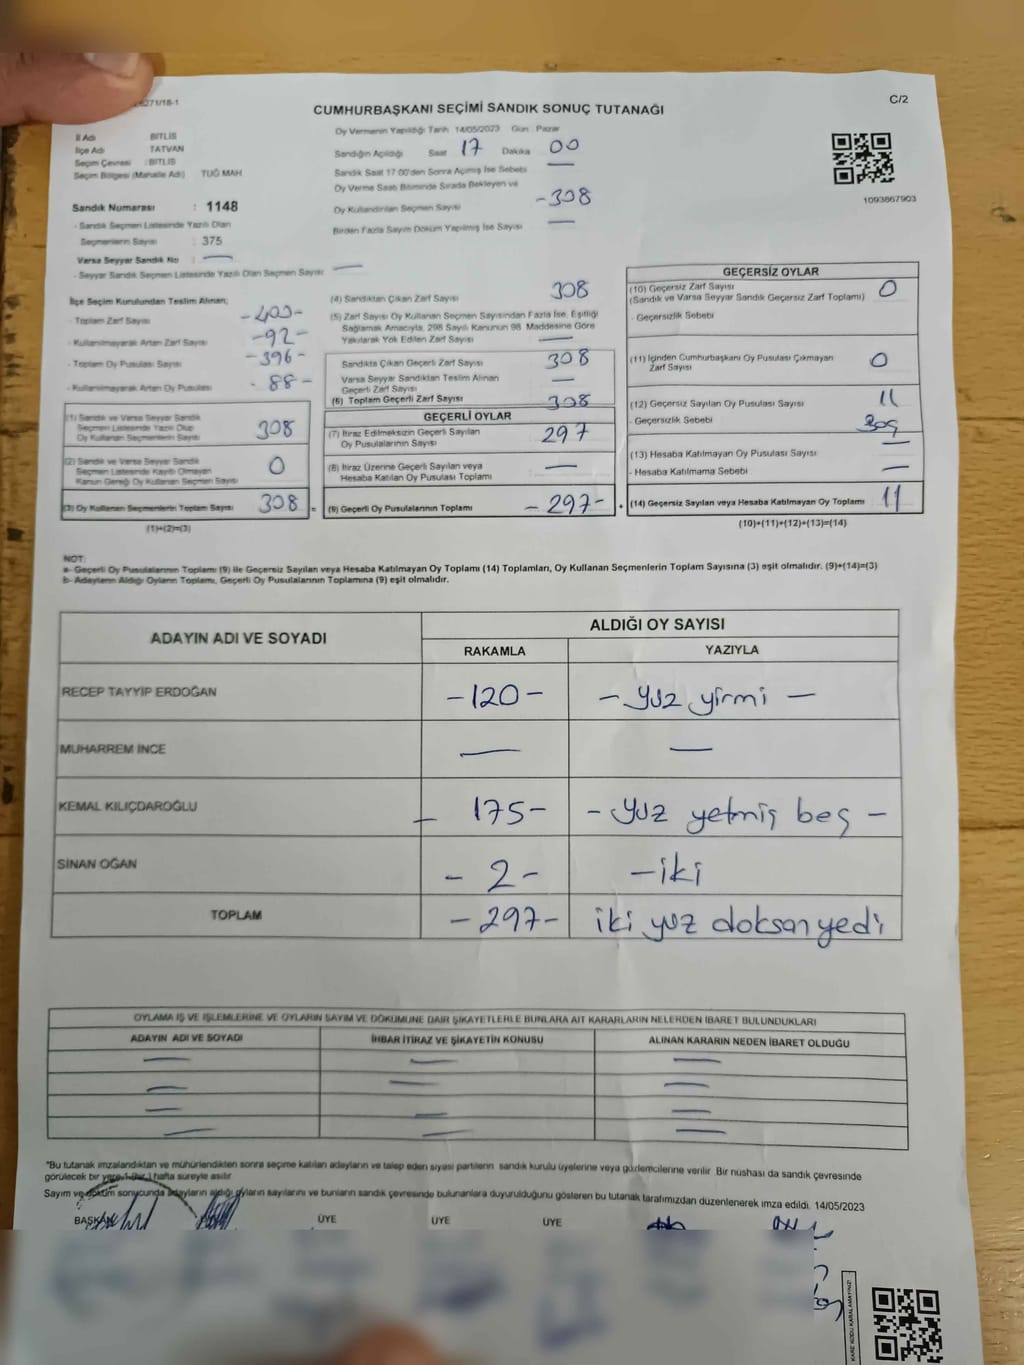 5271/18-1
C/2
CUMHURBAŞKANI SEÇİMİ SANDIK SONUÇ TUTANAĞI
İl Adı BİTLİS
İlçe Adı TATVAN
Seçim Çevresi : BİTLİS
Seçim Bölgesi (Mahalle Adı) TUĞ MAH
Sandık Numarası : 1148
- Sandık Seçmen Listesinde Yazılı Olan
Seçmenlerin Sayısı : 375
Varsa Seyyar Sandık No : —
- Seyyar Sandık Seçmen Listesinde Yazılı Olan Seçmen Sayısı —
Oy Vermenin Yapıldığı Tarih 14/05/2023 Gün Pazar
Sandığın Açıldığı Saat 17 Dakika 00
Sandık Saat 17:00'den Sonra Açılmış İse Sebebi —
Oy Verme Saati Bitiminde Sırada Bekleyen ve
Oy Kullandırılan Seçmen Sayısı -308
Birden Fazla Sayım Döküm Yapılmış İse Sayısı —
1093867903
İlçe Seçim Kurulundan Teslim Alınan;
- Toplam Zarf Sayısı -400-
- Kullanılmayarak Artan Zarf Sayısı -92-
- Toplam Oy Pusulası Sayısı -396-
- Kullanılmayarak Artan Oy Pusulası - 88 -
(1) Sandık ve Varsa Seyyar Sandık
Seçmen Listesinde Yazılı Olup
Oy Kullanan Seçmenlerin Sayısı 308
(2) Sandık ve Varsa Seyyar Sandık
Seçmen Listesinde Kayıtlı Olmayan
Kanun Gereği Oy Kullanan Seçmen Sayısı 0
(3) Oy Kullanan Seçmenlerin Toplam Sayısı 308 =
(1)+(2)=(3)
(4) Sandıktan Çıkan Zarf Sayısı 308
(5) Zarf Sayısı Oy Kullanan Seçmen Sayısından Fazla İse, Eşitliği
Sağlamak Amacıyla, 298 Sayılı Kanunun 98. Maddesine Göre
Yakılarak Yok Edilen Zarf Sayısı —
Sandıkta Çıkan Geçerli Zarf Sayısı 308
Varsa Seyyar Sandıktan Teslim Alınan
Geçerli Zarf Sayısı —
(6) Toplam Geçerli Zarf Sayısı 308
GEÇERLİ OYLAR
(7) İtiraz Edilmeksizin Geçerli Sayılan
Oy Pusulalarının Sayısı 297
(8) İtiraz Üzerine Geçerli Sayılan veya
Hesaba Katılan Oy Pusulası Toplamı —
(9) Geçerli Oy Pusulalarının Toplamı - 297- +
GEÇERSİZ OYLAR
(10) Geçersiz Zarf Sayısı 0
(Sandık ve Varsa Seyyar Sandık Geçersiz Zarf Toplamı)
- Geçersizlik Sebebi
(11) İçinden Cumhurbaşkanı Oy Pusulası Çıkmayan
Zarf Sayısı 0
(12) Geçersiz Sayılan Oy Pusulası Sayısı 11
- Geçersizlik Sebebi
(13) Hesaba Katılmayan Oy Pusulası Sayısı —
- Hesaba Katılmama Sebebi —
(14) Geçersiz Sayılan veya Hesaba Katılmayan Oy Toplamı 11
(10)+(11)+(12)+(13)=(14)
NOT:
a- Geçerli Oy Pusulalarının Toplamı (9) ile Geçersiz Sayılan veya Hesaba Katılmayan Oy Toplamı (14) Toplamları, Oy Kullanan Seçmenlerin Toplam Sayısına (3) eşit olmalıdır. (9)+(14)=(3)
b- Adayların Aldığı Oyların Toplamı, Geçerli Oy Pusulalarının Toplamına (9) eşit olmalıdır.
ADAYIN ADI VE SOYADI
ALDIĞI OY SAYISI
RAKAMLA YAZIYLA
RECEP TAYYİP ERDOĞAN -120- - yuz yirmi -
MUHARREM İNCE — —
KEMAL KILIÇDAROĞLU - 175- - yuz yetmiş beş -
SİNAN OĞAN - 2 - -iki
TOPLAM -297- iki yuz doksan yedi
OYLAMA İŞ VE İŞLEMLERİNE VE OYLARIN SAYIM VE DÖKÜMÜNE DAİR ŞİKAYETLERLE BUNLARA AİT KARARLARIN NELERDEN İBARET BULUNDUKLARI
ADAYIN ADI VE SOYADI İHBAR İTİRAZ VE ŞİKAYETİN KONUSU ALINAN KARARIN NEDEN İBARET OLDUĞU
— — —
— — —
— — —
— — —
*Bu tutanak imzalandıktan ve mühürlendikten sonra seçime katılan adayların ve talep eden siyasi partilerin sandık kurulu üyelerine veya gözlemcilerine verilir. Bir nüshası da sandık çevresinde
görülecek bir yere 1 (bir) hafta süreyle asılır.
Sayım ve döküm sonucunda adayların aldığı oyların sayılarını ve bunların sandık çevresinde bulunanlara duyurulduğunu gösteren bu tutanak tarafımızdan düzenlenerek imza edildi. 14/05/2023
BAŞKAN ÜYE ÜYE ÜYE
KARE KODU KARALAMAYINIZ!